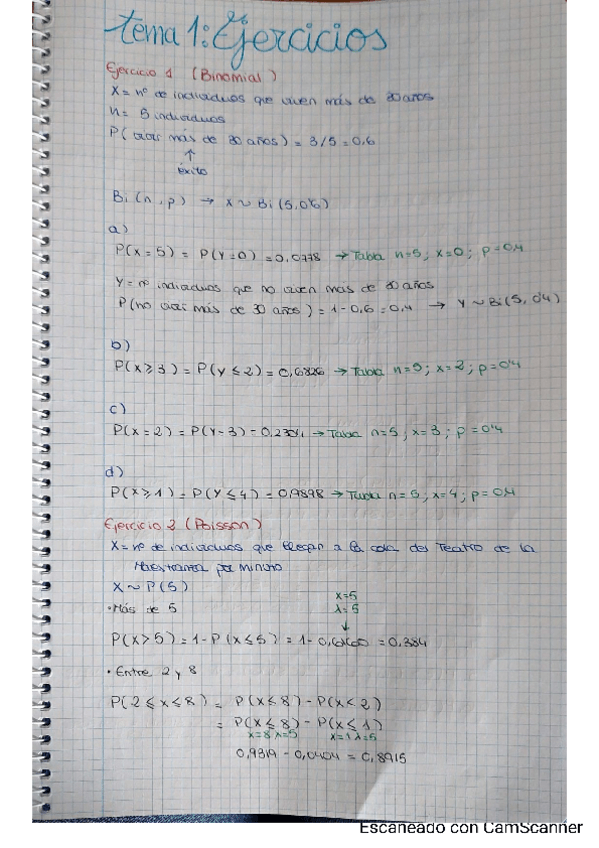 Tema 1: Ejercicios
Ejercicio 1 (Binomial)
X = nº de individuos que viven más de 30 años
n = 5 individuos
P( vivir más de 30 años ) = 3/5 = 0,6
↑
éxito
Bi (n,p) → X ~ Bi (5,0'6)
a)
P(X=5) = P(Y=0) = 0,0778 → Tabla n=5; x=0; p=0'4
Y = nº individuos que no viven más de 30 años
P(no vivir más de 30 años) = 1-0,6 = 0,4 → Y ~ Bi(5, 0'4)
b)
P(X≥3) = P(Y≤2) = 0,6826 → Tabla n=5; x=2; p=0'4
c)
P(X=2) = P(Y=3) = 0,2304 → Tabla n=5, x=3; p=0'4
d)
P(X≥1) = P(Y≤4) = 0,9898 → Tabla n=5, x=4; p=0'4
Ejercicio (Poisson)
X = nº de individuos que llegan a la cola del Teatro de la
Maestranza por minuto
X ~ P(5)
· Más de 5
x=5
λ=5
↓
P(X>5) = 1-P(X≤5) = 1- 0,6160 = 0,384
· Entre 2 y 8
P(2≤X≤8) = P(X≤8) - P(X<2)
= P(X≤8) - P(X≤1)
x=8 λ=5 x=1 λ=5
0,9319 - 0,0404 = 0,8915
Escaneado con CamScanner